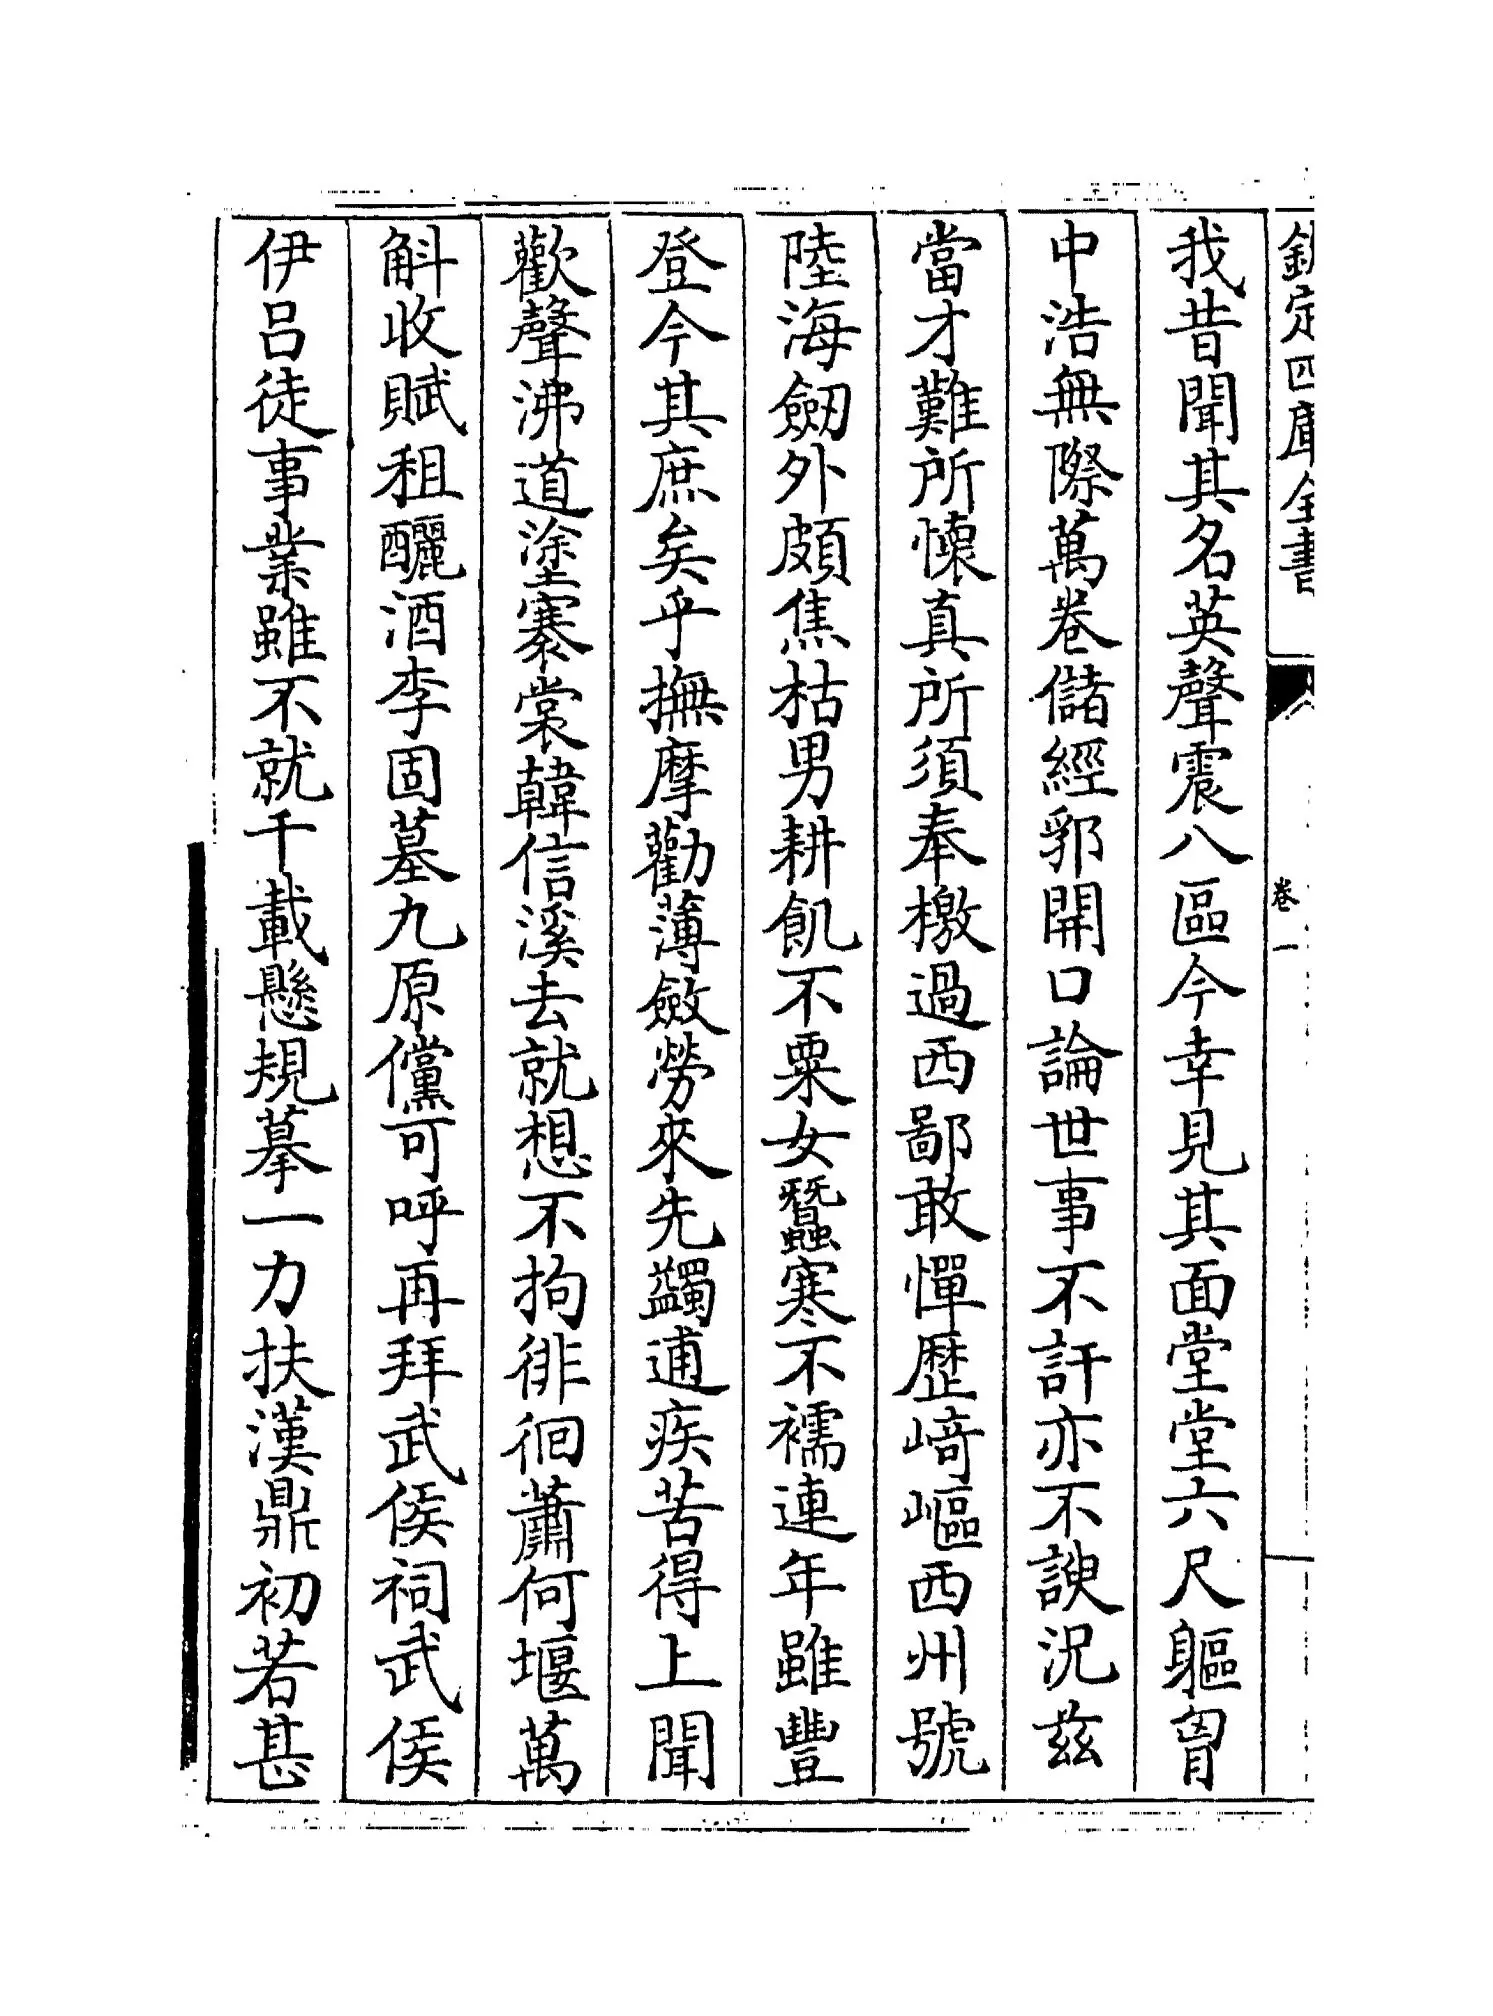 欽定四庫全書
卷一
我昔聞其名英聲震八區今幸見其面堂堂六尺軀胷
中浩無際萬卷儲經郛開口論世事不訐亦不諛況兹
當才難所懐真所須奉檄過西鄙敢憚歴﨑嶇西州號
陸海劒外頗焦枯男耕飢不粟女蠶寒不襦連年雖豐
登今其庶矣乎撫摩勸薄斂勞來先蠲逋疾苦得上聞
歡聲沸道塗褰裳韓信溪去就想不拘徘徊蕭何堰萬
斛收賦租釃酒李固墓九原儻可呼再拜武侯祠武侯
伊呂徒事業雖不就千載懸規摹一力扶漢鼎初若甚